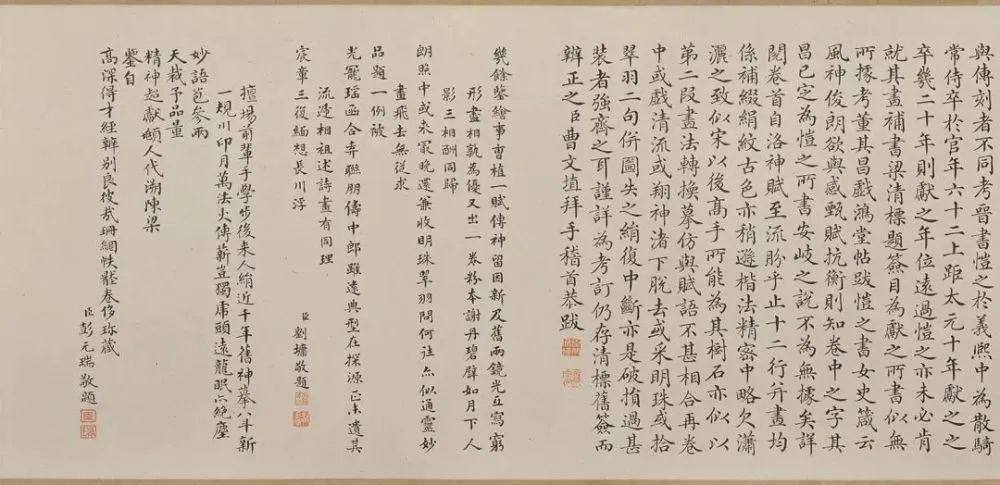 與傳刻者不同考晉書愷之於義熙中為散騎
常侍卒於官年六十二上距太元十年獻之之
卒幾二十年則獻之年位遠過愷之亦未必肯
就其畫補書梁清標題簽目為獻之所書似無
所據考董其昌戲鴻堂帖跋愷之書女史箴云
風神俊朗欲與感甄賦抗衡則知卷中之字其
昌已定為愷之所書安岐之說不為無據矣詳
閱卷首自洛神賦至流盼乎止十二行并畫均
係補綴絹紋古色亦稍遜楷法精密中略欠瀟
灑之致似宋以後高手所能為其樹石亦似以
第二段畫法轉換摹仿與賦語不甚相合再卷
中或戲清流或翔神渚下脫去或采明珠或拾
翠羽二句併圖失之絹復中斷亦是破損過甚
裝者強齊之耳謹詳為考訂仍存清標舊簽而
辨正之臣曹文埴拜手稽首恭跋
幾餘鑒繪事曹植一賦傳神留因新及舊兩鏡光互寫窮
形盡相孰為優又出一卷粉本謝丹碧壁如月下人
影三相酬同歸
朗照中或未宸晚還兼收明珠翠羽問何往亦似通靈妙
畫飛去無從求
品題一例被
光寵瑶函合弆聯朋儔中郎雖遠典型在探源正未遺其
流遞相祖述詩畫有同理
宸章三復緬想長川浮
臣劉墉敬題
擅場前輩手學步後來人絹近千年舊神摹八斗新
一規川印月萬法火傳薪豈獨虎頭遠龍眠亦絕塵
妙語苞參兩
天裁予品量
精神超獻頫人代溯陳梁
鑒自
高深得才經辨別良彼哉珊網帙懸卷侈珍藏
臣彭元瑞敬題